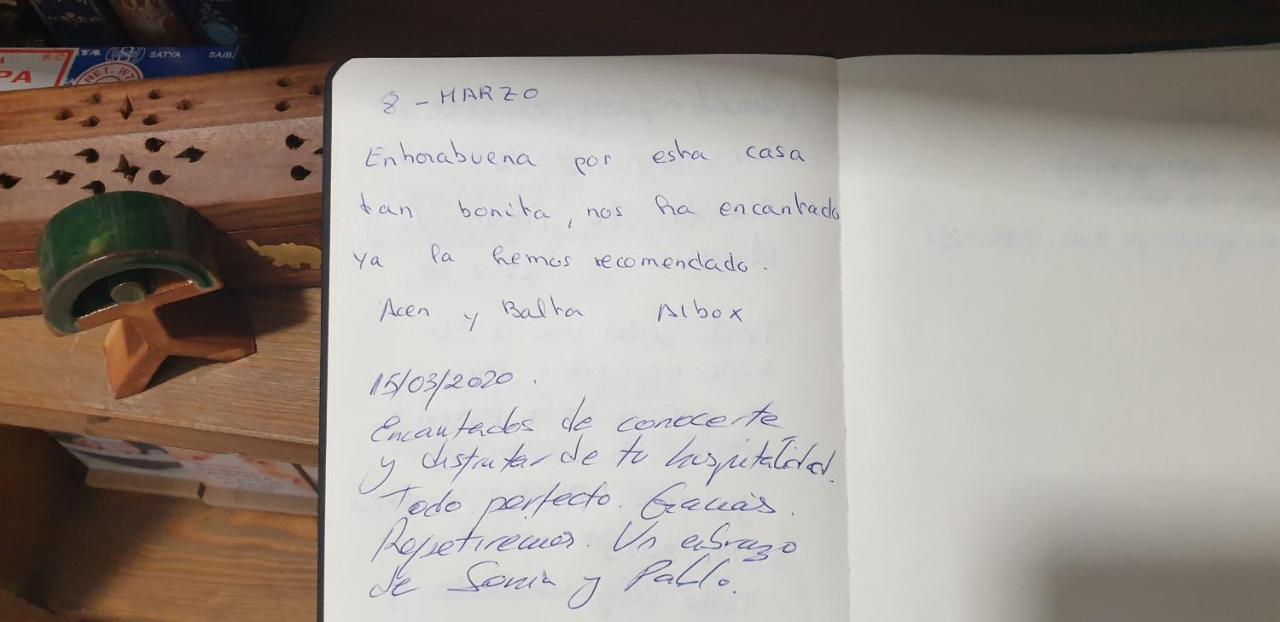 PA
SATYA
SAIB
8 - MARZO
Enhorabuena por esta casa
tan bonita, nos ha encantado
ya la hemos recomendado.
y Balta Albox
15/03/2020.
Encantados de conocerte
y disfrutar de tu hospitalidad.
Todo perfecto. Gracias.
Repetiremos. Un abrazo
de Sonia y Pablo.